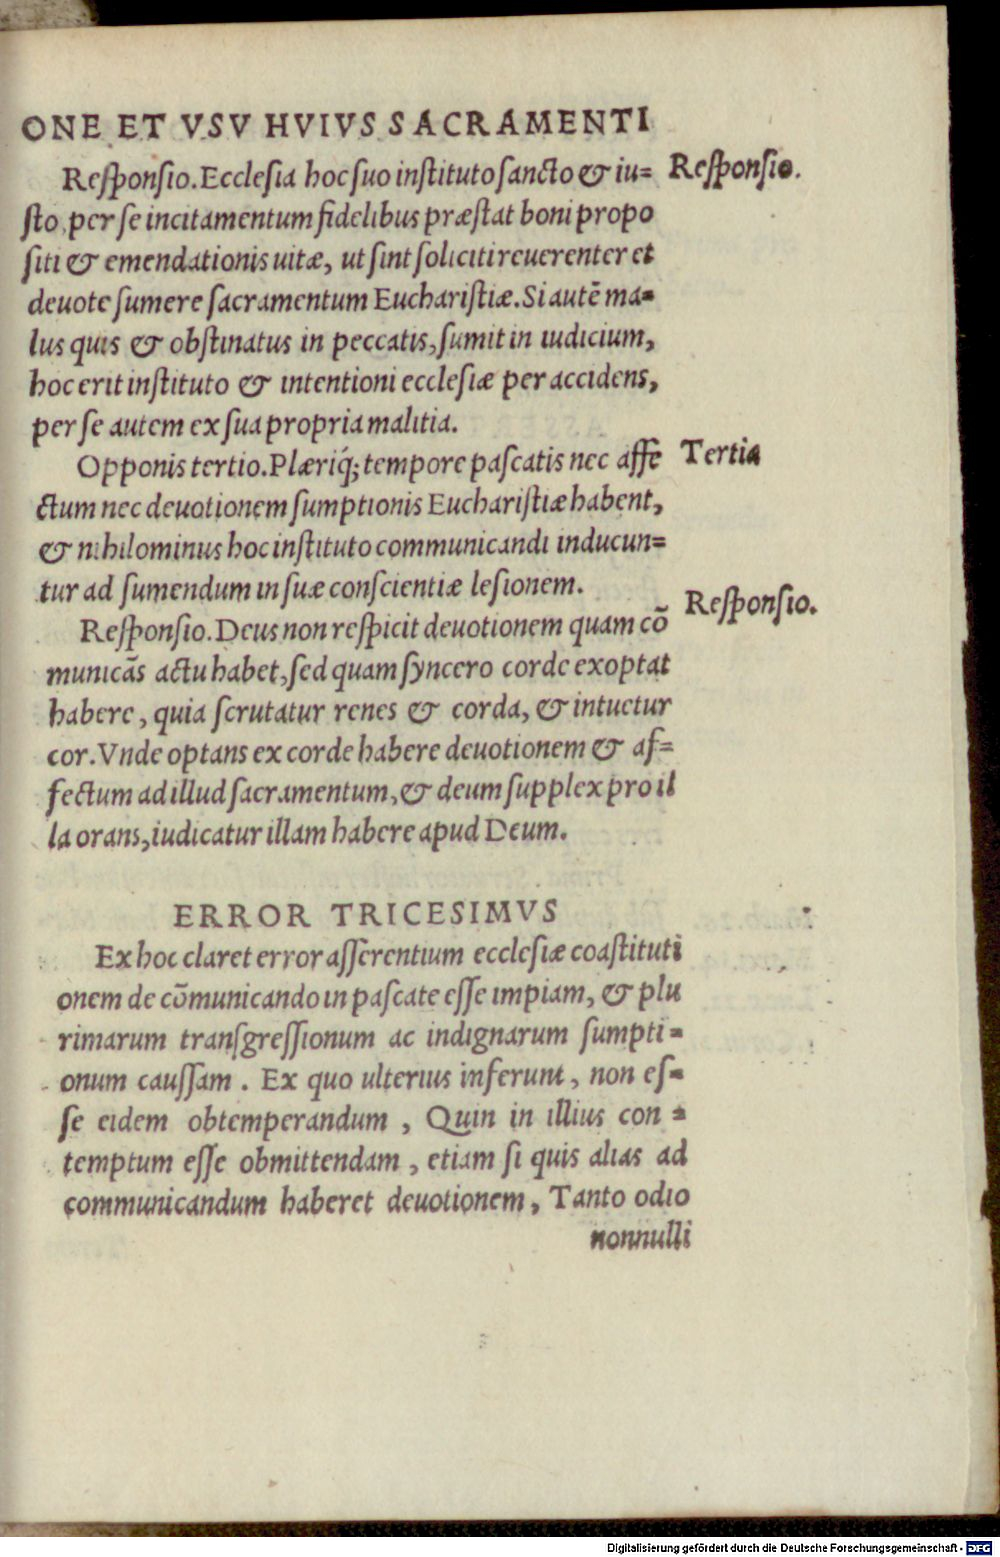 ONE ET VSV HVIVS SACRAMENTI
Reſponſio. Eccleſia hoc ſuo inſtituto ſancto & iu=
Reſponſio.
ſto, per ſe incitamentum fidelibus præſtat boni propo
ſiti & emendationis uitæ, ut ſint ſoliciti reuerenter et
deuote ſumere ſacramentum Euchariſtiæ. Si autē ma=
lus quis & obſtinatus in peccatis, ſumit in iudicium,
hoc erit inſtituto & intentioni eccleſiæ per accidens,
per ſe autem ex ſua propria malitia.
Opponis tertio. Plæriq́; tempore paſcatis nec affe
Tertia
ctum nec deuotionem ſumptionis Euchariſtiæ habent,
& nihilominus hoc inſtituto communicandi inducun=
tur ad ſumendum in ſuæ conſcientiæ leſionem.
Reſponſio. Deus non reſpicit deuotionem quam cō
Reſponſio.
municās actu habet, ſed quam ſyncero corde exoptat
habere, quia ſcrutatur renes & corda, & intuetur
cor. Vnde optans ex corde habere deuotionem & af=
fectum ad illud ſacramentum, & deum ſupplex pro il
la orans, iudicatur illam habere apud Deum.
ERROR TRICESIMVS
Ex hoc claret error aſſerentium eccleſiæ coaſtituti
onem de cōmunicando in paſcate eſſe impiam, & plu
rimarum tranſgreſſionum ac indignarum ſumpti=
onum cauſſam. Ex quo ulterius inferunt, non eſ=
ſe eidem obtemperandum, Quin in illius con=
temptum eſſe obmittendam, etiam ſi quis alias ad
communicandum haberet deuotionem, Tanto odio
nonnulli
Digitalisierung gefördert durch die Deutsche Forschungsgemeinschaft - DFG